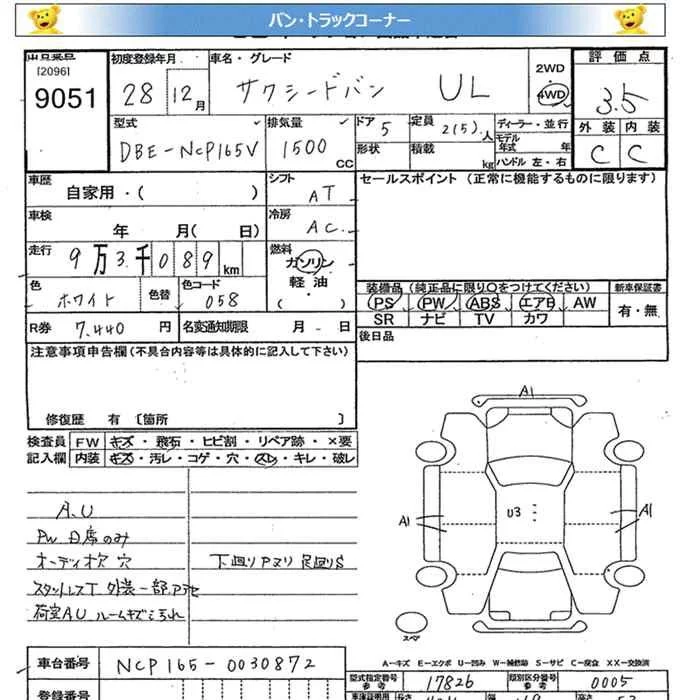 バン・トラックコーナー
[2096]
9051
初度登録年月
28 12月
車名・グレード
サクシードバン UL
2WD
4WD
評価点
3.5
外装 内装
C C
型式
DBE-NCP165V
排気量
1500 CC
ドア 5
形状
定員 2(5)人
積載 kg
ディーラー・並行
モデル年式 年
ハンドル 左・右
車歴
自家用・( )
シフト
AT
セールスポイント (正常に機能するものに限ります)
車検
年 月( 日)
冷房
AC
走行
9万3千089km
燃料
ガソリン
軽油
・( )
色
ホワイト
色替
色コード
058
装備品 (純正品に限り○をつけてください)
PS PW ABS エアB AW
SR ナビ TV カワ
新車保証書
有・無
R券 7,440 円
名変通知期限 月 - 日
後日品
注意事項申告欄(不具合内容等は具体的に記入して下さい)
修復歴 有 〔箇所 〕
検査員記入欄
FW キズ・飛石・ヒビ割・リペア跡・×要
内装 キズ・汚レ・コゲ・穴・スレ・キレ・破レ
A.U
PW 日席のみ
オーディオ欠 穴
スタットレスT 外装一部アセ
荷室AU ルームキズこられ
下廻りPヌリ 足廻りS
A1
A1
U3
A1
スペア
A-キズ E-エクボ U-凹み W-補修跡 S-サビ C-腐食 XX-交換済
車台番号 NCP165-0030872
型式指定番号 参考 17826
類別区分番号 参考 0005
登録番号
車庫証明用